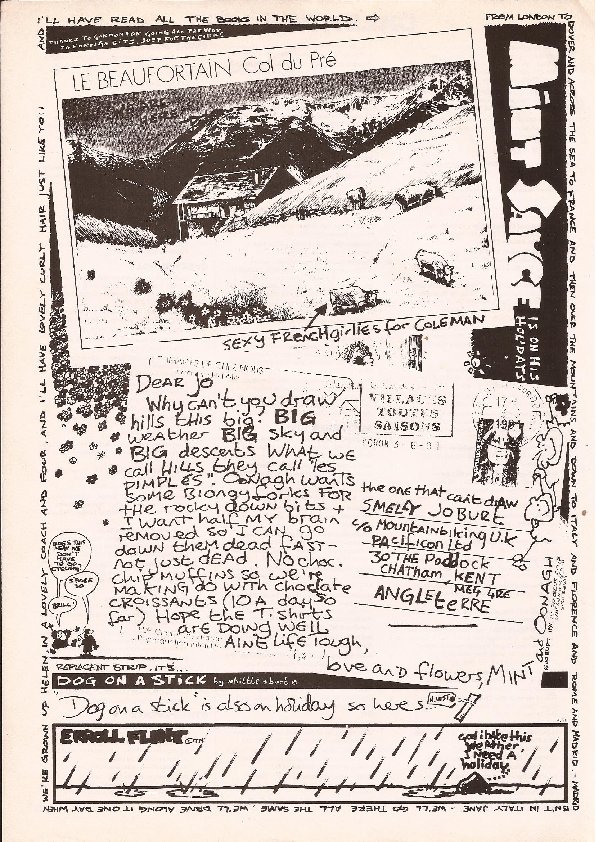 I'LL HAVE READ ALL THE BOOKS IN THE WORLD.
FROM LONDON TO
DOVER AND ACROSS THE SEA TO FRANCE AND THEN OVER THE MOUNTAINS AND DOWN TO ITALY AND FLORENCE AND ROME AND MADRID - MADRID
ISN'T IN ITALY JANE - WE'LL GO THERE ALL THE SAME - WE'LL DRIVE ALONG IT ONE DAY WHEN
WE'RE GROWN UP HELEN IN A LOVELY COACH AND FOUR AND I'LL HAVE LOVELY CURLY HAIR JUST LIKE YOU
AND
LE BEAUFORTAIN Col du Pré
MINT SAUCE
IS ON HIS
HOLIDAYS
SEXY FRENCH girlies for COLEMAN
DEAR JO
Why can't you draw
hills this big? BIG
weather BIG sky and
BIG descents. What we
call HILLS they call "les
PIMPLES". Oonagh wants
some Biongy forks FOR
the rocky down bits +
I want half MY brain
removed so I CAN go
down them dead FAST-
not just DEAD. No choc.
chip muffins so we're
making do with choclate
CROISSANTS (10 A day so
far) Hope the T.shirts
are DOING WELL
Aint life tough,
love and flowers, MINT
VILLAGES
TOUTES
SAISONS
the one that cant draw
SMELLY JO BURT
c/o Mountainbiking U.K
Pacificon Ltd
30 THE Paddock
CHATHAM KENT
ANGLETERRE
REPLACENT STRIP...ITS...
DOG ON A STICK by whittle + burt
"Dog on a stick" is also on holiday so heres
ERROLL FLINT
god i hate this
weather,
I NEED A
holiday